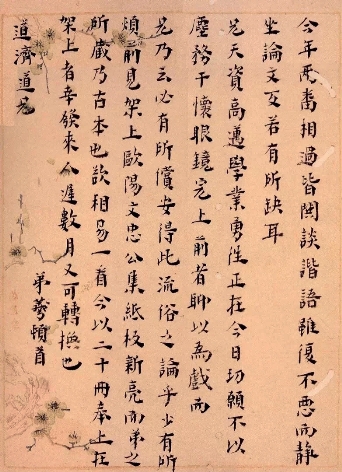 今年兩番相過皆閒談諧語雖復不惡而靜
坐論文又若有所缺耳
兄天資高邁學業勇進正在今日切願不以
塵務干懷眼鏡完上前者聊以為戲而
兄乃云必有所償安得此流俗之論乎少有所
煩前見架上歐陽文忠公集紙板新亮而弟之
所藏乃古本也欲相易一看今以二十冊奉上在
架上者幸發來遲數月又可轉換也
弟頓首
道濟道兄